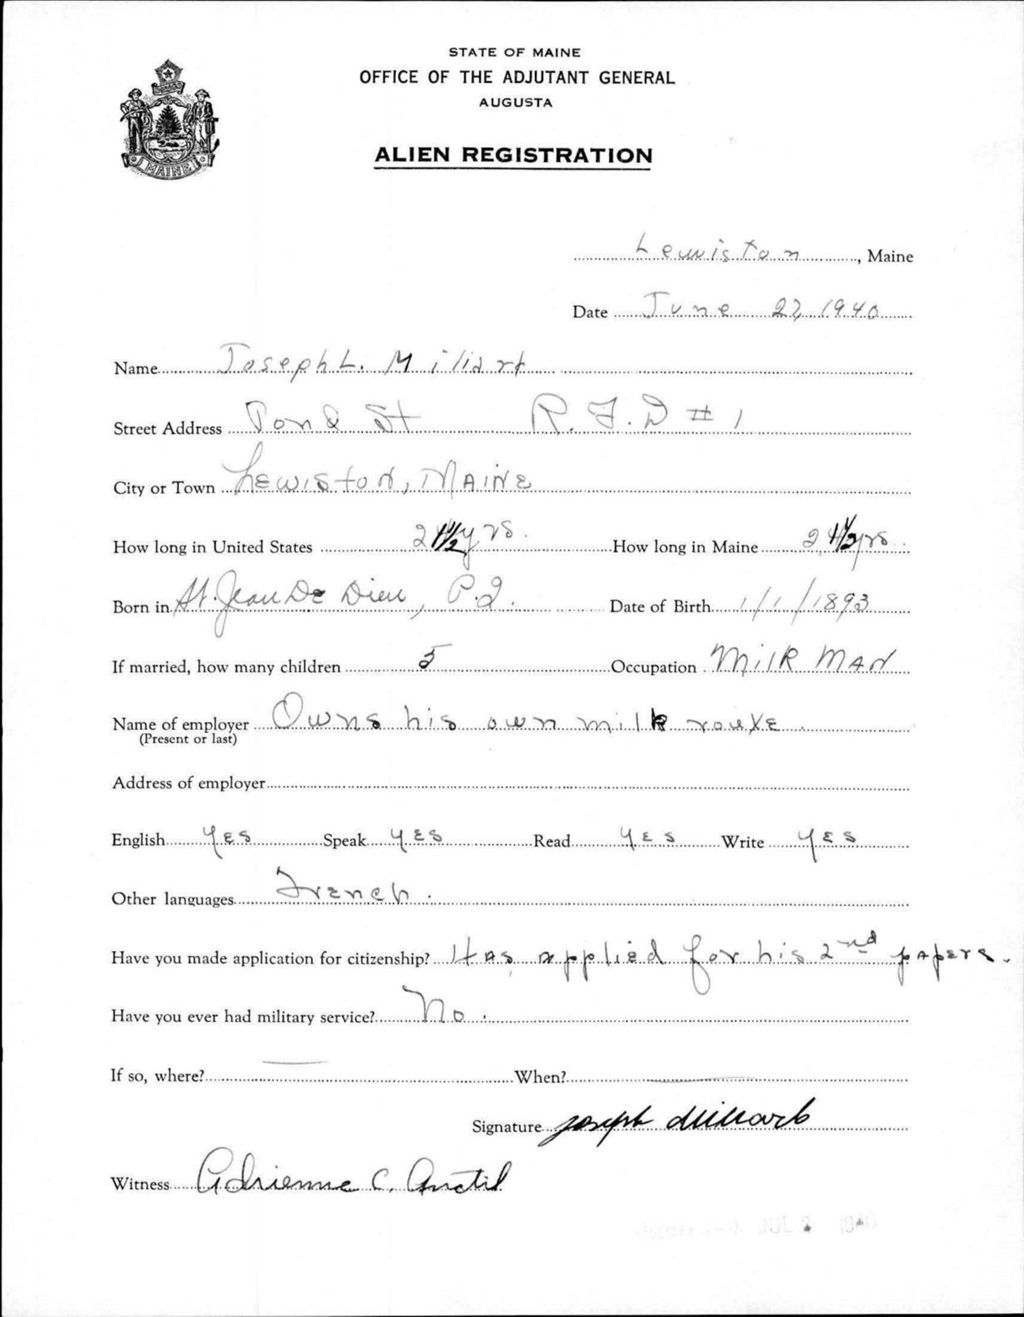 STATE OF MAINE
OFFICE OF THE ADJUTANT GENERAL
AUGUSTA
MAINE
ALIEN REGISTRATION
Lewiston, Maine
Date June 27, 1940
Name Joseph L. Milliart
Street Address Pond St R.F.D #1
City or Town Lewiston, Maine
How long in United States 2 1/2 yrs. How long in Maine 2 1/2 yrs.
Born in St. Jean De Dieu, P.Q. Date of Birth 1/1/1893
If married, how many children 5 Occupation Milk Man
Name of employer Owns his own milk route.
(Present or last)
Address of employer
English Yes Speak Yes Read Yes Write Yes
Other languages French.
Have you made application for citizenship? Has applied for his 2nd papers.
Have you ever had military service? No.
If so, where? When?
Signature Joseph
Witness Adrienne C. Anctil
JUL 2 1940